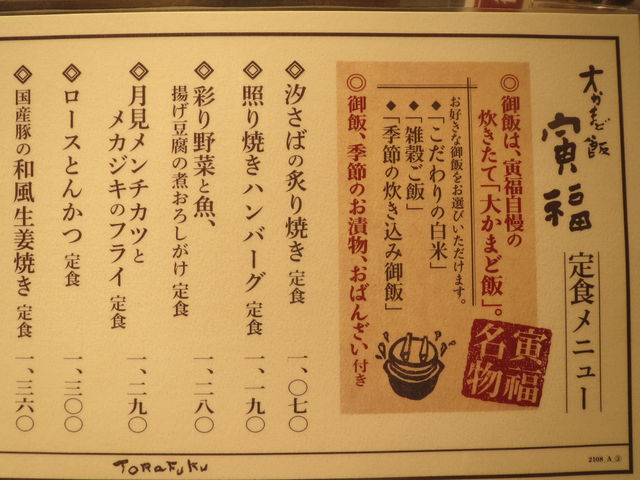 大かまど飯
寅福
定食メニュー
◎御飯は、寅福自慢の
炊きたて「大かまど飯」。
お好きな御飯をお選びいただけます。
◆「こだわりの白米」
◆「雑穀ご飯」
◆「季節の炊き込み御飯」
◎御飯、季節のお漬物、おばんざい付き
寅福
名物
◈汐さばの炙り焼き 定食 一、〇七〇
◈照り焼きハンバーグ 定食 一、一九〇
◈彩り野菜と魚、
揚げ豆腐の煮おろしがけ 定食 一、二八〇
◈月見メンチカツと
メカジキのフライ 定食 一、二九〇
◈ロースとんかつ 定食 一、三〇〇
◈国産豚の和風生姜焼き 定食 一、三六〇
TORAFUKU
2108_A_③